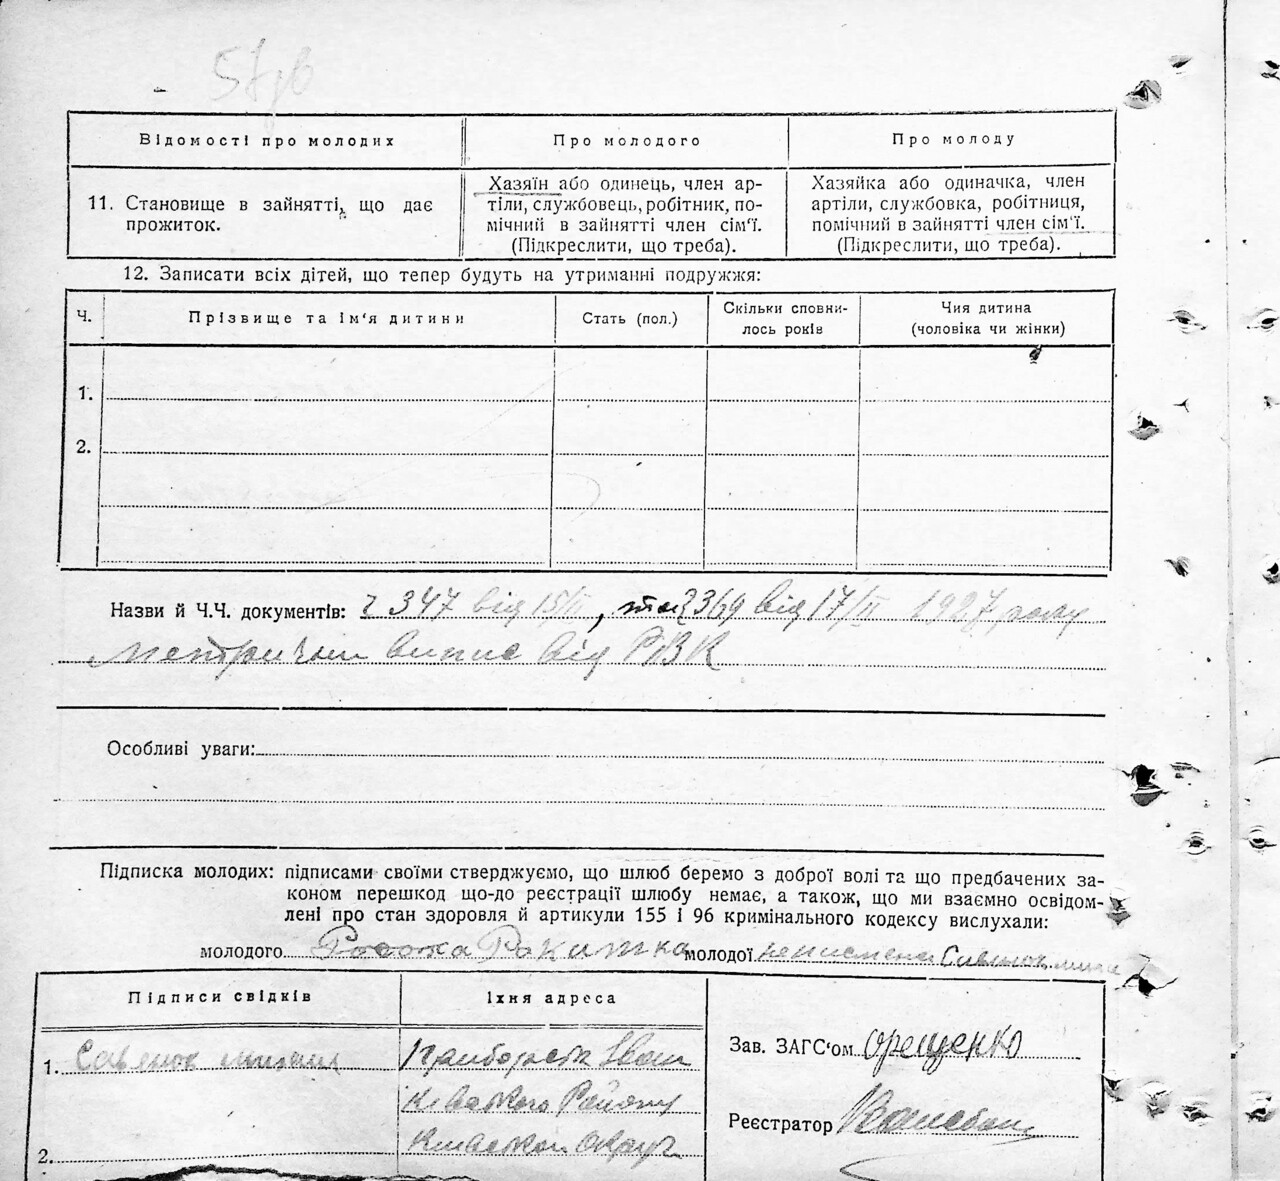 Відомості про молодих
Про молодого
Про молоду
11. Становище в зайнятті, що дає прожиток.
Хазяїн або одинець, член ар-
тіли, службовець, робітник, по-
мічний в зайнятті член сім'ї.
(Підкреслити, що треба).
Хазяйка або одиначка, член
артіли, службовка, робітниця,
помічний в зайнятті член сім'ї.
(Підкреслити, що треба).
12. Записати всіх дітей, що тепер будуть на утриманні подружжя:
Ч.
Прізвище та ім'я дитини
Стать (пол.)
Скільки сповни-
лось років
Чия дитина
(чоловіка чи жінки)
1.
2.
Назви й Ч.Ч. документів: 347 від 15/II, та 2369 від 17/II 1927 року
виписи від РВК
Особливі уваги:
Підписка молодих: підписами своїми стверджуємо, що шлюб беремо з доброї волі та що предбачених за-
коном перешкод що-до реєстрації шлюбу немає, а також, що ми взаємно освідом-
лені про стан здоровля й артикули 155 і 96 кримінального кодексу вислухали:
молодого Ракитка молодої неписмена Савенок
Підписи свідків
Їхня адреса
1. Савенок
Іван
Району
2.
Зав. ЗАГС'ом Орещенко
Реєстратор